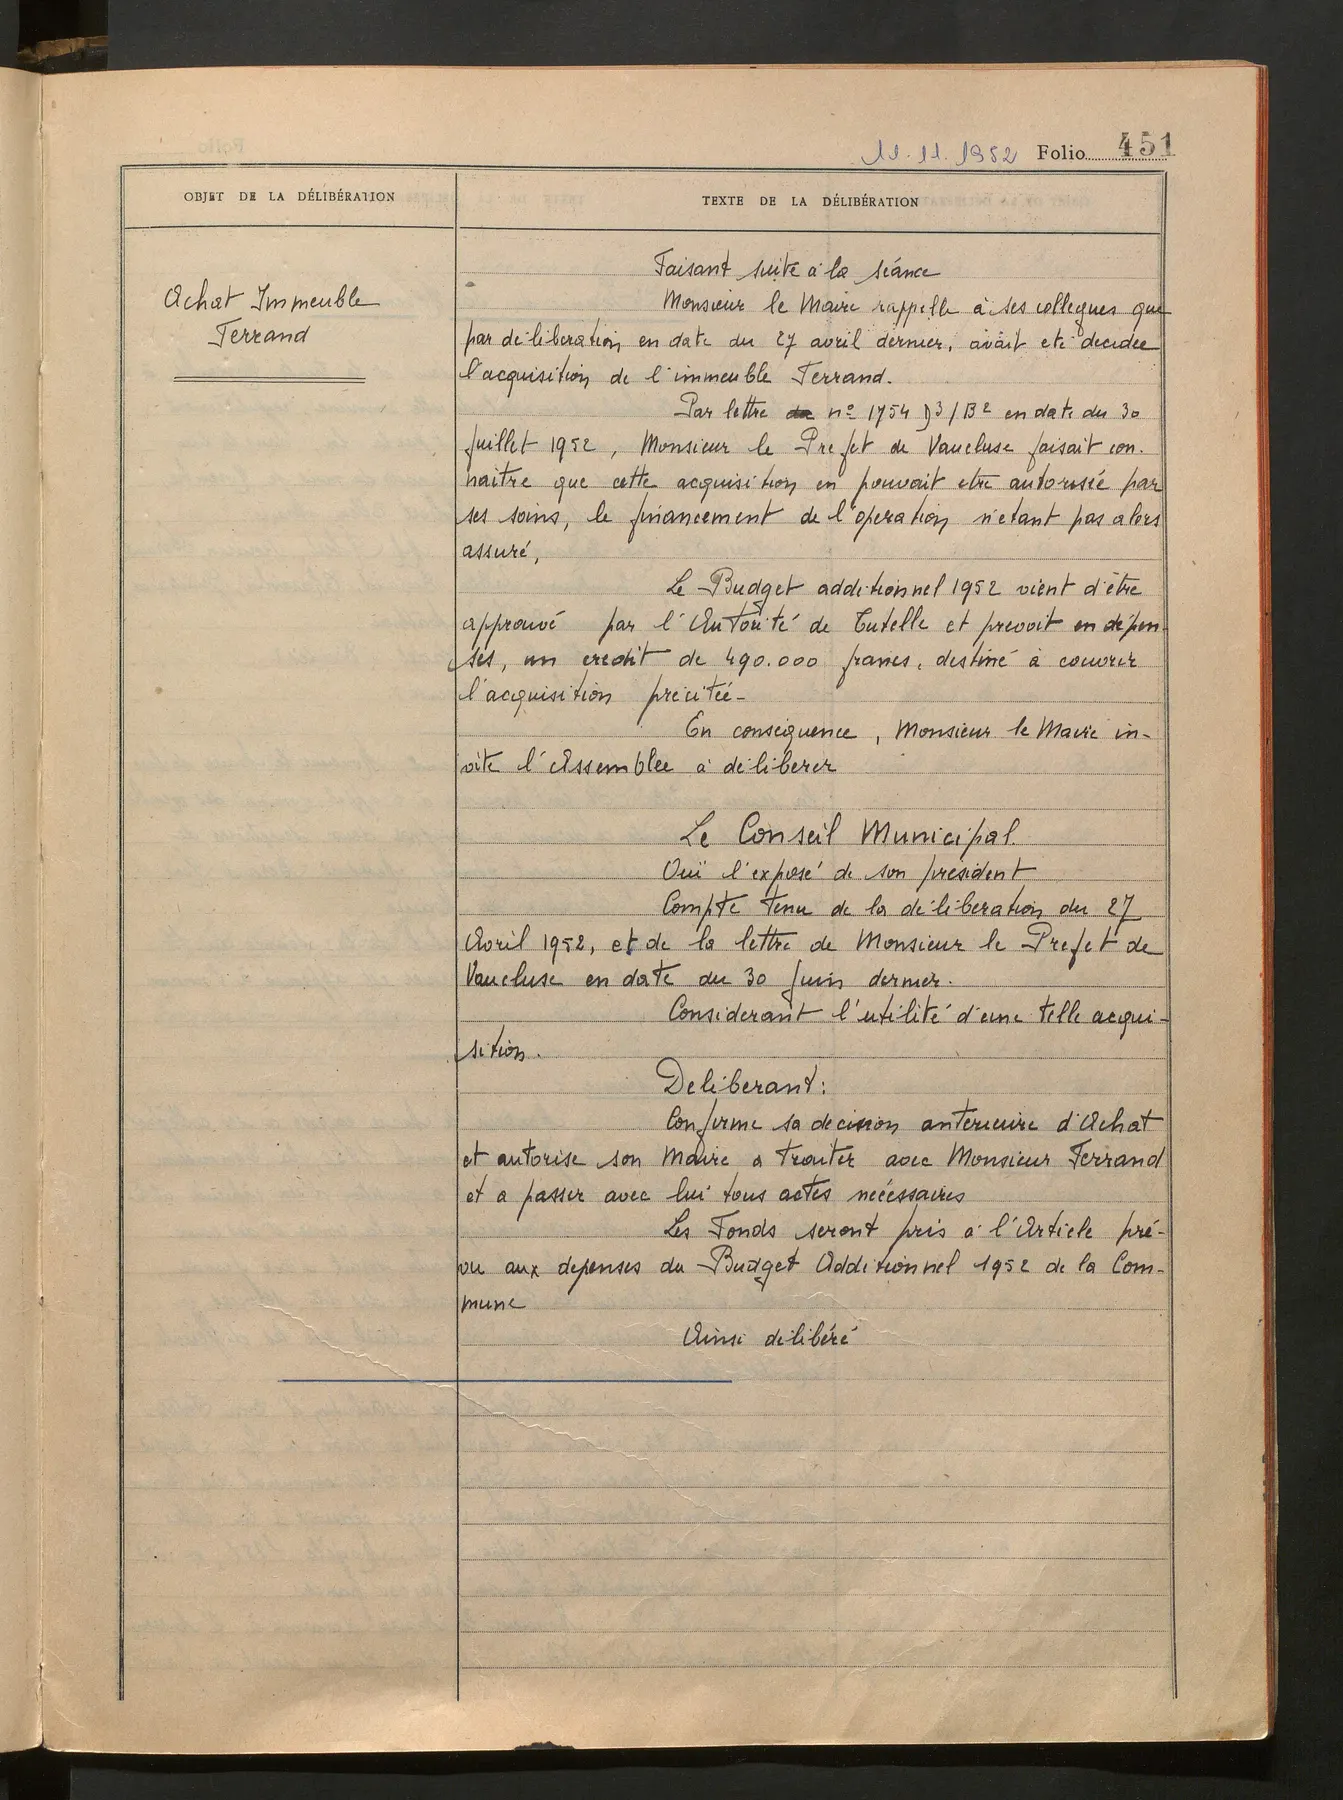 11.11.1952 Folio 451
OBJET DE LA DÉLIBÉRATION
TEXTE DE LA DÉLIBÉRATION
Achat Immeuble
Ferrand
Faisant suite à la séance
Monsieur le Maire rappelle à ses collegues que
par déliberation en date du 27 avril dernier, avait eté decidée
l'acquisition de l'immeuble Ferrand.
Par lettre de n° 1754 D3/B2 en date du 30
Juillet 1952, Monsieur le Prefet de Vaucluse faisait con-
naitre que cette acquisition en pouvait etre autorisée par
ses soins, le financement de l'operation n'etant pas alors
assuré,
Le Budget additionnel 1952 vient d'être
approuvé par l'Autorité de Tutelle et prevoit en dépen-
ses, un credit de 490.000 francs, destiné à couvrir
l'acquisition précitée-
En consequence, Monsieur le Maire in-
vite l'Assemblee à déliberer
Le Conseil Municipal.
Ouï l'exposé de son président
Compte tenu de la déliberation du 27
Avril 1952, et de la lettre de Monsieur le Prefet de
Vaucluse en date du 30 Juin dernier.
Considerant l'utilité d'une telle acqui-
sition.
Deliberant:
Confirme sa decision anterieure d'Achat
et autorise son Maire a traiter avec Monsieur Ferrand
et a passer avec lui tous actes nécessaires
Les Fonds seront pris à l'Article pré-
vu aux depenses du Budget Additionnel 1952 de la Com-
mune
Ainsi délibéré